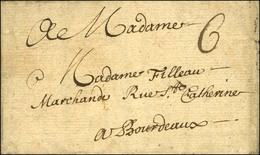 A Madame 6
Madame Filleau
Marchande Rue Ste Catherine
a Bourdeaux